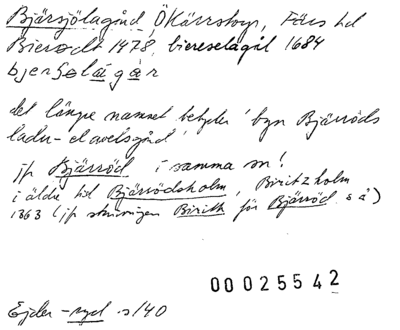 Bjärsjölagård, Ö Kärrstorp, Färs hd
Bierødt 1478, biereselagål 1684
bjerʃolágár
det längre namnet betyder 'byn Bjärröds
ladu- el avelsgård'
jfr Bjärröd i samma sn!
i äldre tid Bjärrödsholm, Biritzholm
1863 (jfr skrivningen Birith för Bjärröd så)
00025542
Ejder-nyd s/40